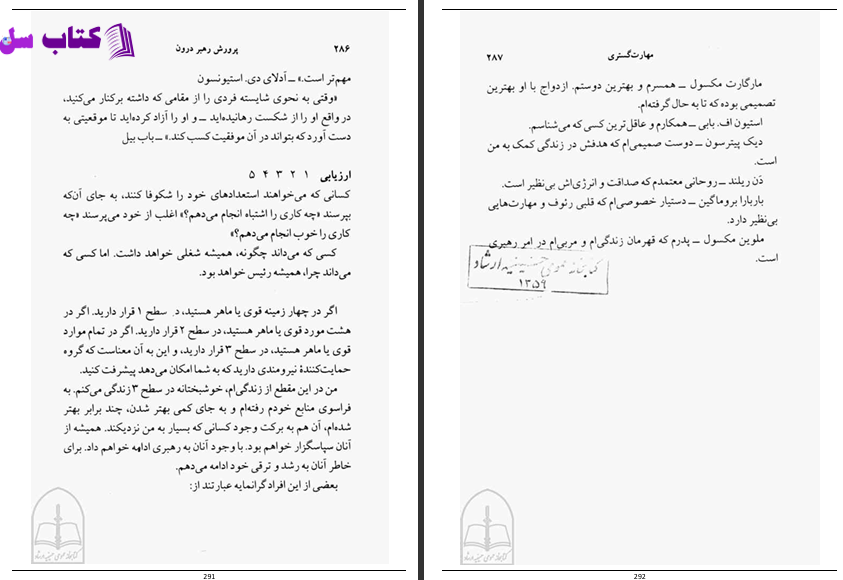 کتاب سل
۲۸۶ پرورش رهبر درون
مهم‌تر است.» ــ آدلای دی. استیونسون
«وقتی به نحوی شایسته فردی را از مقامی که داشته برکنار می‌کنید،
در واقع او را از شکست رهانیده‌اید ــ و او را آزاد کرده‌اید تا موقعیتی به
دست آورد که بتواند در آن موفقیت کسب کند.» ــ باب بیل
ارزیابی ۱ ۲ ۳ ۴ ۵
کسانی که می‌خواهند استعدادهای خود را شکوفا کنند، به جای آن‌که
بپرسند «چه کاری را اشتباه انجام می‌دهم؟» اغلب از خود می‌پرسند «چه
کاری را خوب انجام می‌دهم؟»
کسی که می‌داند چگونه، همیشه شغلی خواهد داشت. اما کسی که
می‌داند چرا، همیشه رئیس خواهد بود.
اگر در چهار زمینه قوی یا ماهر هستید، در سطح ۱ قرار دارید. اگر در
هشت مورد قوی یا ماهر هستید، در سطح ۲ قرار دارید. اگر در تمام موارد
قوی یا ماهر هستید، در سطح ۳ قرار دارید، و این به آن معناست که گروه
حمایت‌کنندهٔ نیرومندی دارید که به شما امکان می‌دهد پیشرفت کنید.
من در این مقطع از زندگی‌ام، خوشبختانه در سطح ۳ زندگی می‌کنم. به
فراسوی منابع خودم رفته‌ام و به جای کمی بهتر شدن، چند برابر بهتر
شده‌ام، آن هم به برکت وجود کسانی که بسیار به من نزدیکند. همیشه از
آنان سپاسگزار خواهم بود. با وجود آنان به رهبری ادامه خواهم داد. برای
خاطر آنان به رشد و ترقی خود ادامه می‌دهم.
بعضی از این افراد گرانمایه عبارتند از:
291
مهارت‌گستری ۲۸۷
مارگارت مکسول ــ همسرم و بهترین دوستم. ازدواج با او بهترین
تصمیمی بوده که تا به حال گرفته‌ام.
استیون اف. بابی ــ همکارم و عاقل‌ترین کسی که می‌شناسم.
دیک پیترسون ــ دوست صمیمی‌ام که هدفش در زندگی کمک به من
است.
دَن ریلند ــ روحانی معتمدم که صداقت و انرژی‌اش بی‌نظیر است.
باربارا بروماگین ــ دستیار خصوصی‌ام که قلبی رئوف و مهارت‌هایی
بی‌نظیر دارد.
ملوین مکسول ــ پدرم که قهرمان زندگی‌ام و مربی‌ام در امر رهبری
است.
کتابخانه عمومی حسینیه ارشاد
۱۳۵۹
292